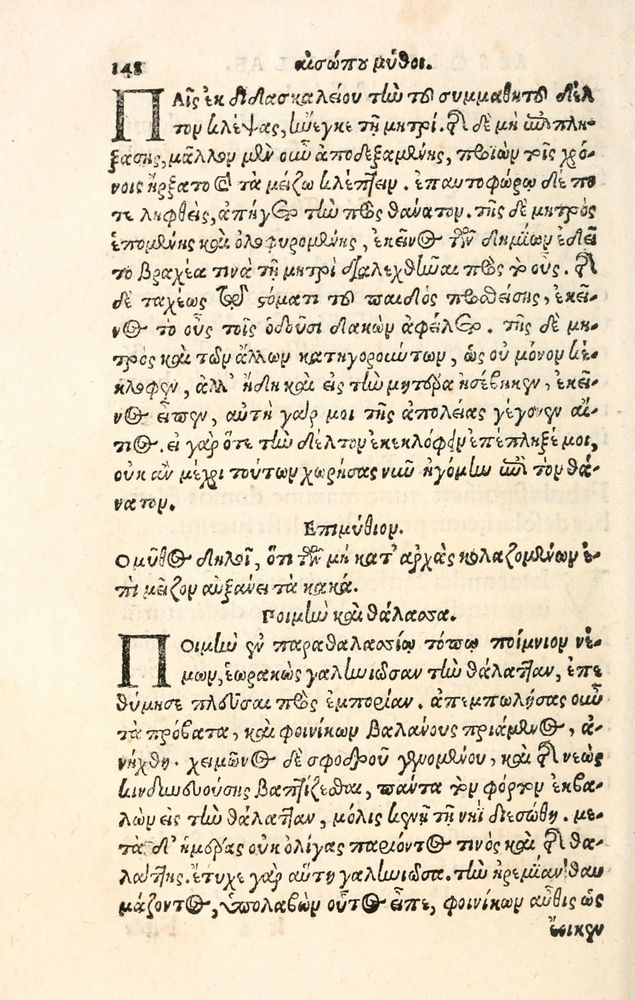 148 αἰσώπου μῦθοι.
ΠΑῖς ἐκ διδασκαλείου τὴν τοῦ συμμαθητοῦ δέλ
τον κλέψας, ἤνεγκε τῇ μητρί. τῆς δὲ μὴ ἐπιπλη-
ξάσης, μᾶλλον μὲν οὖν ἀποδεξαμένης, προϊὼν τοῖς χρό-
νοις ἤρξατο καὶ τὰ μείζω κλέπτειν. ἐπαυτοφώρῳ δέ πο
τε ληφθεὶς, ἀπήγετο τὴν πρὸς θάνατον. τῆς δὲ μητρὸς
ἑπομένης καὶ ὀλοφυρομένης, ἐκεῖνος τῶν δημίων ἐδεῖ
το βραχέα τινὰ τῇ μητρὶ διαλεχθῆναι πρὸς τὸ οὖς. τῆς
δὲ ταχέως τῷ στόματι τοῦ παιδὸς προσθείσης, ἐκεῖ-
νος τὸ οὖς τοῖς ὀδοῦσι δακὼν ἀφείλετο. τῆς δὲ μη-
τρὸς καὶ τῶν ἄλλων κατηγορούντων, ὡς οὐ μόνον κέ-
κλοφεν, ἀλλ' ἤδη καὶ εἰς τὴν μητέρα ἠσέβηκεν, ἐκεῖ-
νος εἶπεν, αὐτὴ γάρ μοι τῆς ἀπολείας γέγονεν αἴ-
τιος. εἰ γὰρ ὅτε τὴν δέλτον ἐκεκλόφειν ἐπέπληξέ μοι,
οὐκ ἂν μέχρι τούτων χωρήσας νῦν ἠγόμην ἐπὶ τὸν θά-
νατον.
Επιμύθιον.
Ο μῦθος δηλοῖ, ὅτι τῶν μὴ κατ' ἀρχὰς κολαζομένων ἐ-
πὶ μεῖζον αὐξάνει τὰ κακά.
Ποιμὴν καὶ θάλασσα.
ΠΟιμὴν ἐν παραθαλασσίῳ τόπῳ ποίμνιον νέ-
μων, ἑωρακὼς γαλιωιῶσαν τὴν θάλατταν, ἐπε
θύμησε πλεῦσαι πρὸς ἐμπορίαν. ἀπεμπωλήσας οὖν
τὰ πρόβατα, καὶ φοινίκων βαλάνους πριάμενος, ἀ-
νήχθη. χειμῶνος δὲ σφοδροῦ γενομένου, καὶ τῆς νεὼς
κινδυνευούσης βαπτίζεσθαι, πάντα τὸν φόρτον ἐκβα-
λὼν εἰς τὴν θάλατταν, μόλις κενῇ τῇ νηῒ διεσώθη. με-
τὰ δ' ἡμέρας οὐκ ὀλίγας παριόντος τινὸς καὶ τῆς θα-
λάττης. ἔτυχε γὰρ αὕτη γαληνιῶσα. τὴν ἠρεμίαν θαυ
μάζοντος, ὑπολαβὼν οὗτος εἶπε, φοινίκων αὖθις ὡς
ἔοικεν